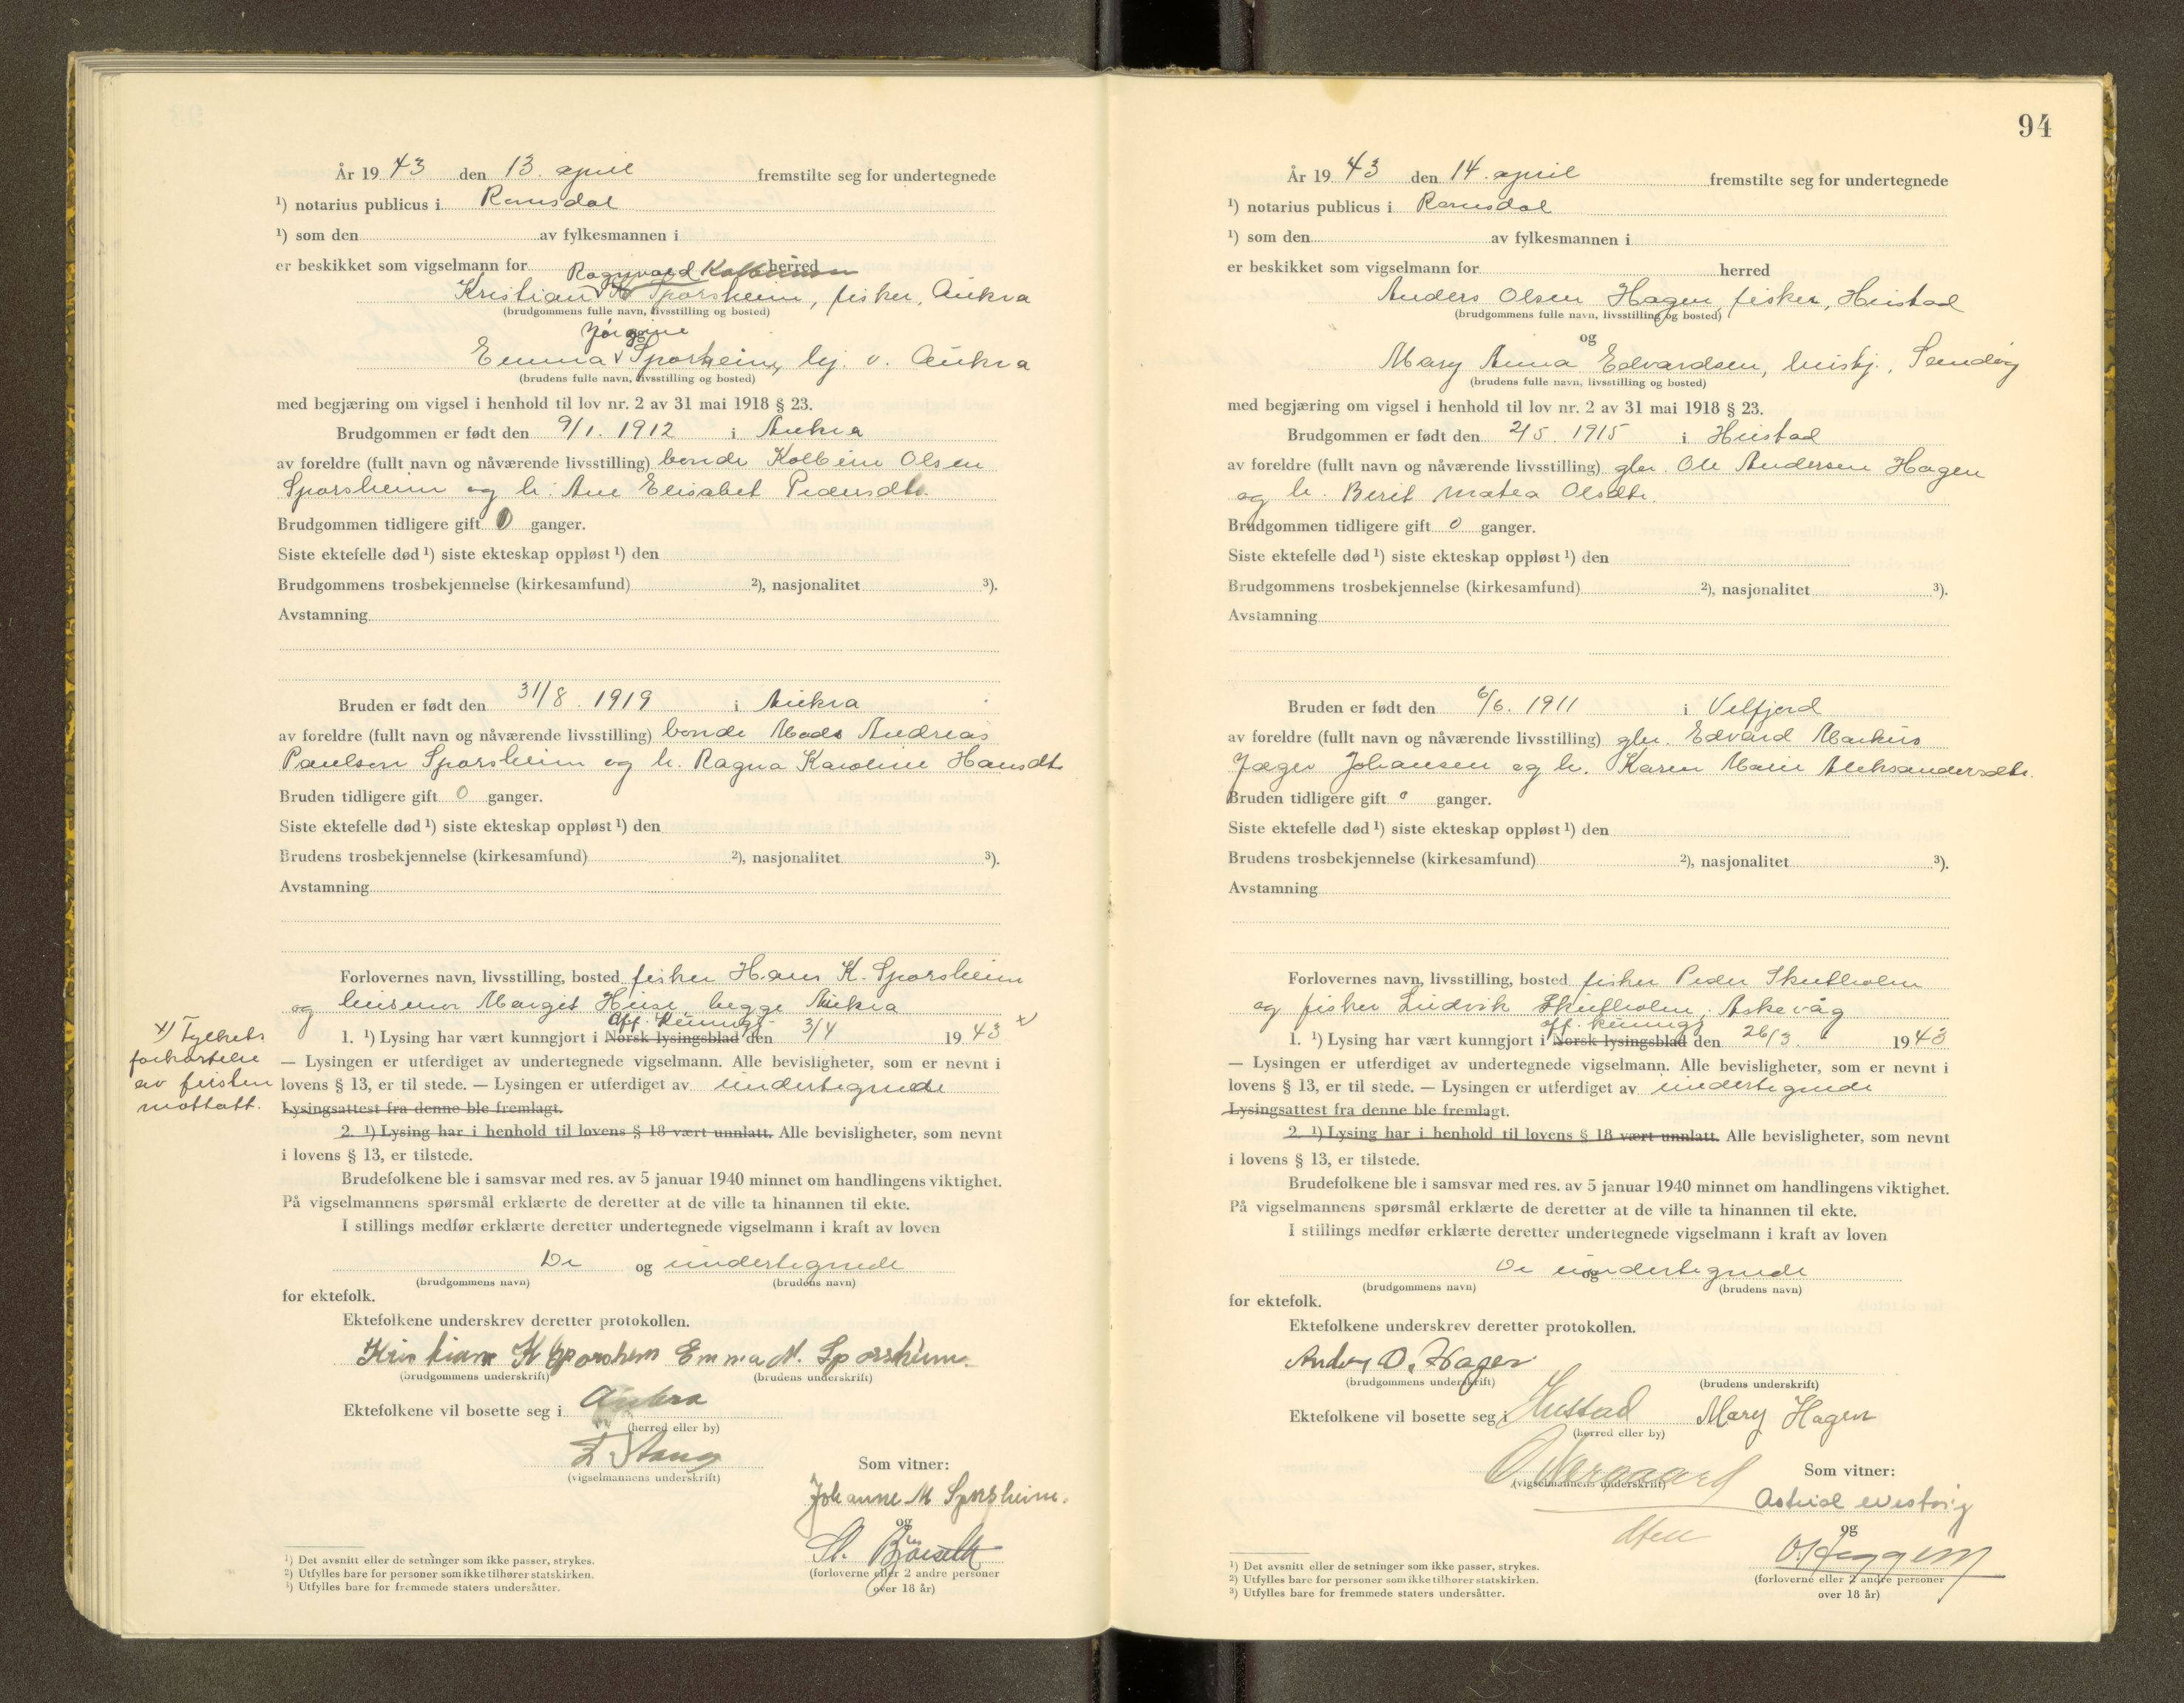 År 19 43 den 13. april fremstilte seg for undertegnede
¹) notarius publicus i Romsdal
¹) som den av fylkesmannen i
er beskikket som vigselmann for herred
Ragnvald Kolbeinson
Kristian Sporsheim, fisker, Aukra
(brudgommens fulle navn, livsstilling og bosted)
og
Jørgine
Emma Sporsheim, hj. v. Aukra
(brudens fulle navn, livsstilling og bosted)
med begjæring om vigsel i henhold til lov nr. 2 av 31 mai 1918 § 23.
Brudgommen er født den 9/1. 1912 i Aukra
av foreldre (fullt navn og nåværende livsstilling) bonde Kolbein Olsen
Sporsheim og h. Ane Elisabet Pedersdtr.
Brudgommen tidligere gift 0 ganger.
Siste ektefelle død ¹) siste ekteskap oppløst ¹) den
Brudgommens trosbekjennelse (kirkesamfund) ²), nasjonalitet ³).
Avstamning
Bruden er født den 31/8. 1919 i Aukra
av foreldre (fullt navn og nåværende livsstilling) bonde Mads Andreas
Paulsen Sporsheim og h. Ragna Karoline Hansdtr
Bruden tidligere gift 0 ganger.
Siste ektefelle død ¹) siste ekteskap oppløst ¹) den
Brudens trosbekjennelse (kirkesamfund) ²), nasjonalitet ³).
Avstamning
Forlovernes navn, livsstilling, bosted fisker Hans K. Sporsheim
og husmor Margit Huse, begge Aukra
off. kunngj.
1. ¹) Lysing har vært kunngjort i Norsk lysingsblad den 3/4 19 43 x)
x) Fylkets
forkortelse
av fristen
mottatt.
— Lysingen er utferdiget av undertegnede vigselmann. Alle bevisligheter, som er nevnt i
lovens § 13, er til stede. — Lysingen er utferdiget av undertegnede
Lysingsattest fra denne ble fremlagt.
2. ¹) Lysing har i henhold til lovens § 18 vært unnlatt. Alle bevisligheter, som nevnt
i lovens § 13, er tilstede.
Brudefolkene ble i samsvar med res. av 5 januar 1940 minnet om handlingens viktighet.
På vigselmannens spørsmål erklærte de deretter at de ville ta hinannen til ekte.
I stillings medfør erklærte deretter undertegnede vigselmann i kraft av loven
De og undertegnede
(brudgommens navn) (brudens navn)
for ektefolk.
Ektefolkene underskrev deretter protokollen.
Kristian K Sporshem Emma N. Sporsheim.
(brudgommens underskrift) (brudens underskrift)
Ektefolkene vil bosette seg i Aukra
(herred eller by)
Stang
(vigselmannens underskrift)
Som vitner:
Johanne M Sporsheim.
og
(forloverne eller 2 andre personer
over 18 år)
¹) Det avsnitt eller de setninger som ikke passer, strykes.
²) Utfylles bare for personer som ikke tilhører statskirken.
³) Utfylles bare for fremmede staters undersåtter.
94
År 19 43 den 14. april fremstilte seg for undertegnede
¹) notarius publicus i Romsdal
¹) som den av fylkesmannen i
er beskikket som vigselmann for herred
Anders Olsen Hagen, fisker, Hustad
(brudgommens fulle navn, livsstilling og bosted)
og
Mary Anna Edvardsen, hushj.,
(brudens fulle navn, livsstilling og bosted)
med begjæring om vigsel i henhold til lov nr. 2 av 31 mai 1918 § 23.
Brudgommen er født den 2/5. 1915 i Hustad
av foreldre (fullt navn og nåværende livsstilling) gbr. Ole Andersen Hagen
og h. Berit Matea Olsdtr.
Brudgommen tidligere gift 0 ganger.
Siste ektefelle død ¹) siste ekteskap oppløst ¹) den
Brudgommens trosbekjennelse (kirkesamfund) ²), nasjonalitet ³).
Avstamning
Bruden er født den 6/6. 1911 i Velfjord
av foreldre (fullt navn og nåværende livsstilling) gbr. Edvard Markus
Jæger Johansen og h. Karen Marie Aleksandersdtr.
Bruden tidligere gift 0 ganger.
Siste ektefelle død ¹) siste ekteskap oppløst ¹) den
Brudens trosbekjennelse (kirkesamfund) ²), nasjonalitet ³).
Avstamning
Forlovernes navn, livsstilling, bosted fisker Peder Skutholm
og fisker Ludvik Skutholm, Askevåg
off. kunngj.
1. ¹) Lysing har vært kunngjort i Norsk lysingsblad den 26/3. 19 43
— Lysingen er utferdiget av undertegnede vigselmann. Alle bevisligheter, som er nevnt i
lovens § 13, er til stede. — Lysingen er utferdiget av undertegnede
Lysingsattest fra denne ble fremlagt.
2. ¹) Lysing har i henhold til lovens § 18 vært unnlatt. Alle bevisligheter, som nevnt
i lovens § 13, er tilstede.
Brudefolkene ble i samsvar med res. av 5 januar 1940 minnet om handlingens viktighet.
På vigselmannens spørsmål erklærte de deretter at de ville ta hinannen til ekte.
I stillings medfør erklærte deretter undertegnede vigselmann i kraft av loven
De og undertegnede
(brudgommens navn) (brudens navn)
for ektefolk.
Ektefolkene underskrev deretter protokollen.
Anders O. Hagen
(brudgommens underskrift) (brudens underskrift)
Ektefolkene vil bosette seg i Hustad Mary Hagen
(herred eller by)
(vigselmannens underskrift)
Som vitner:
Astrid
og
(forloverne eller 2 andre personer
over 18 år)
¹) Det avsnitt eller de setninger som ikke passer, strykes.
²) Utfylles bare for personer som ikke tilhører statskirken.
³) Utfylles bare for fremmede staters undersåtter.